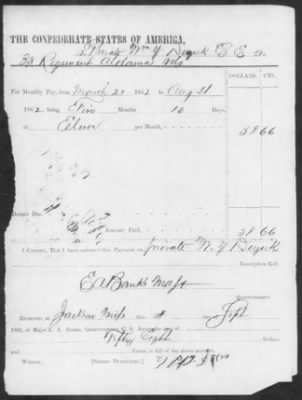 THE CONFEDERATE STATES OF AMERICA,
To Private Wm Y Dr.
33 Regiment Alabama Vols
DOLLARS. CTS.
For Monthly Pay, from March 20 1862 to Aug 31
1862 being Five Months 10 Days,
at Eleven per Month, 58 66
Deduct Due
Amount Paid, 58 66
I CERTIFY, That I have endorsed this Payment on private W. Y
Description Roll.
E A Banks Majr
Quartermaster.
RECEIVED, at Jackson Miss this 4 day of Sept
1862, of Major E. A. BANKS, Quartermaster, C. S. Army, the sum of
Fifty Eight Dollars
and Cents, in full of the above account.
Witness: [SIGNED DUPLICATE.]